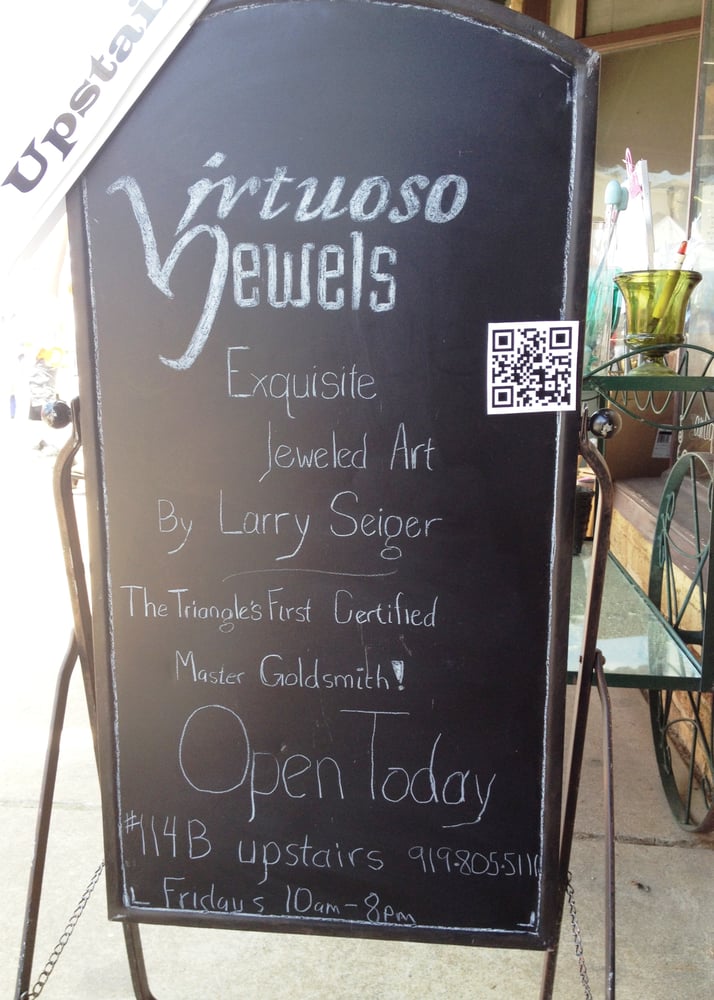 Upstai
Virtuoso
Jewels
Exquisite
Jeweled Art
By Larry Seiger
The Triangle's First Certified
Master Goldsmith!
Open Today
#114B upstairs 919.805.5111
Fridays 10am-8pm